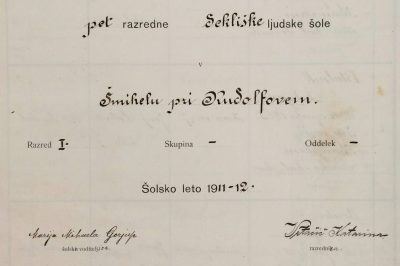 pet razredne Dekliške ljudske šole
v
Šmihelu pri Rudolfovem.
Razred I. Skupina – Oddelek –
Šolsko leto 1911-12.
Marija Mihaela
šolski voditelj razrednik